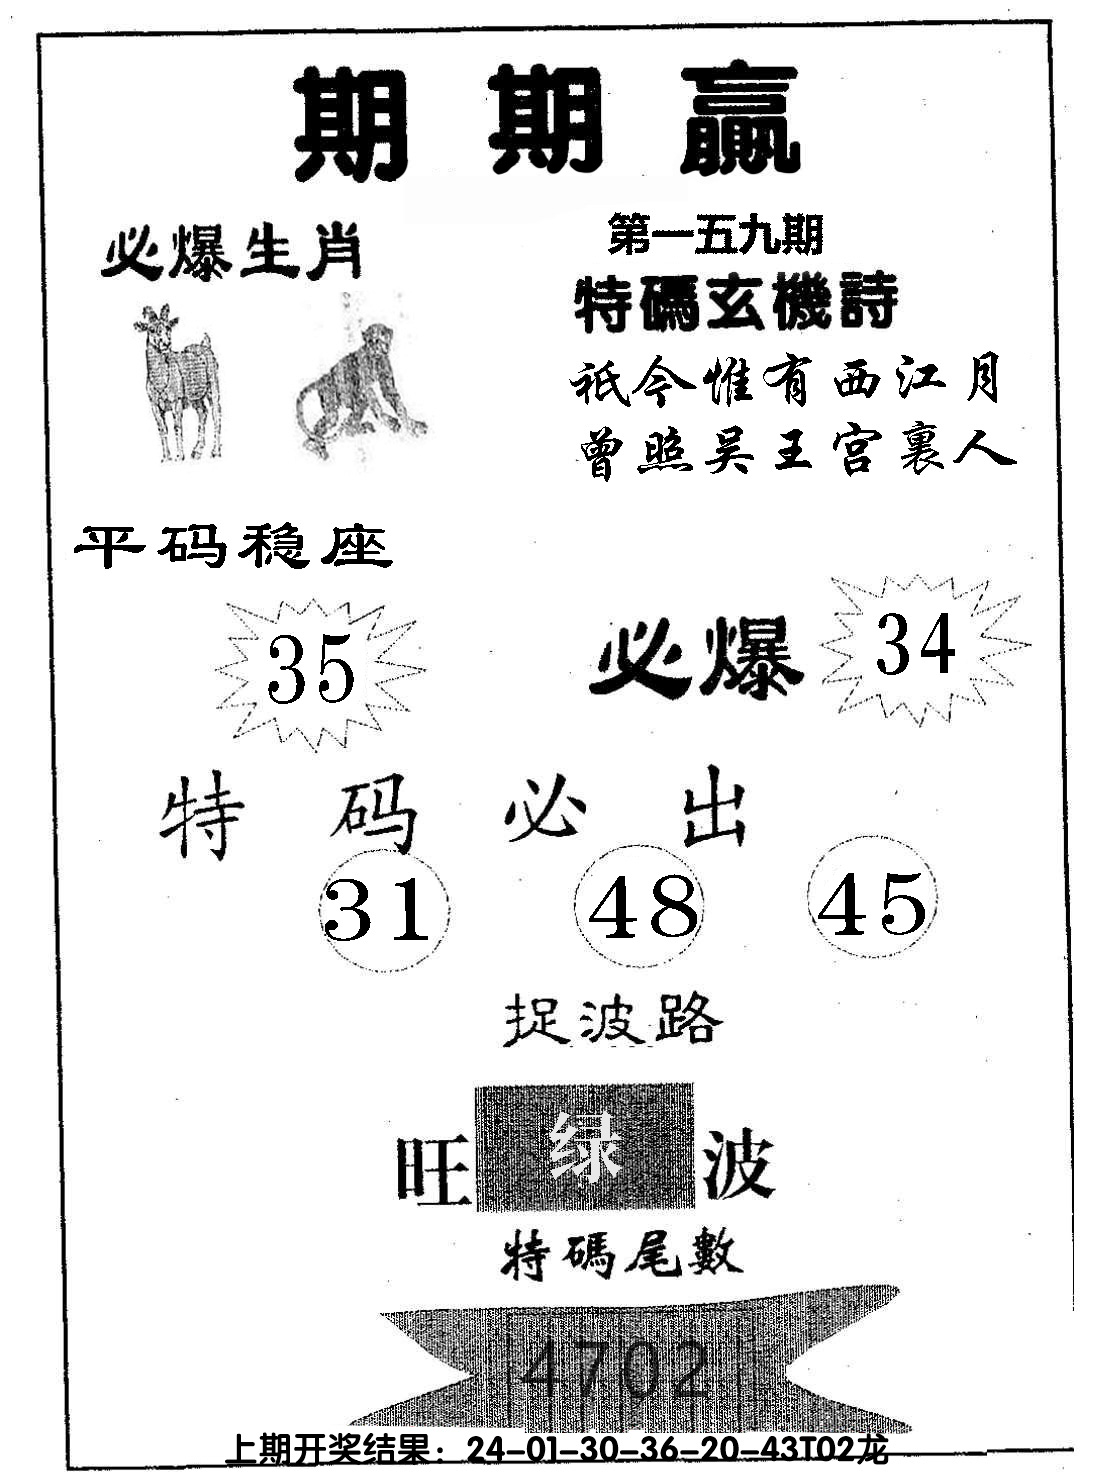 期期赢
必爆生肖
第一五九期
特碼玄機詩
祇今惟有西江月
曾照吴王宫裏人
平码稳座
35
必爆
34
特码必出
31 48 45
捉波路
旺绿波
特碼尾數
4702
上期开奖结果：24-01-30-36-20-43T02龙